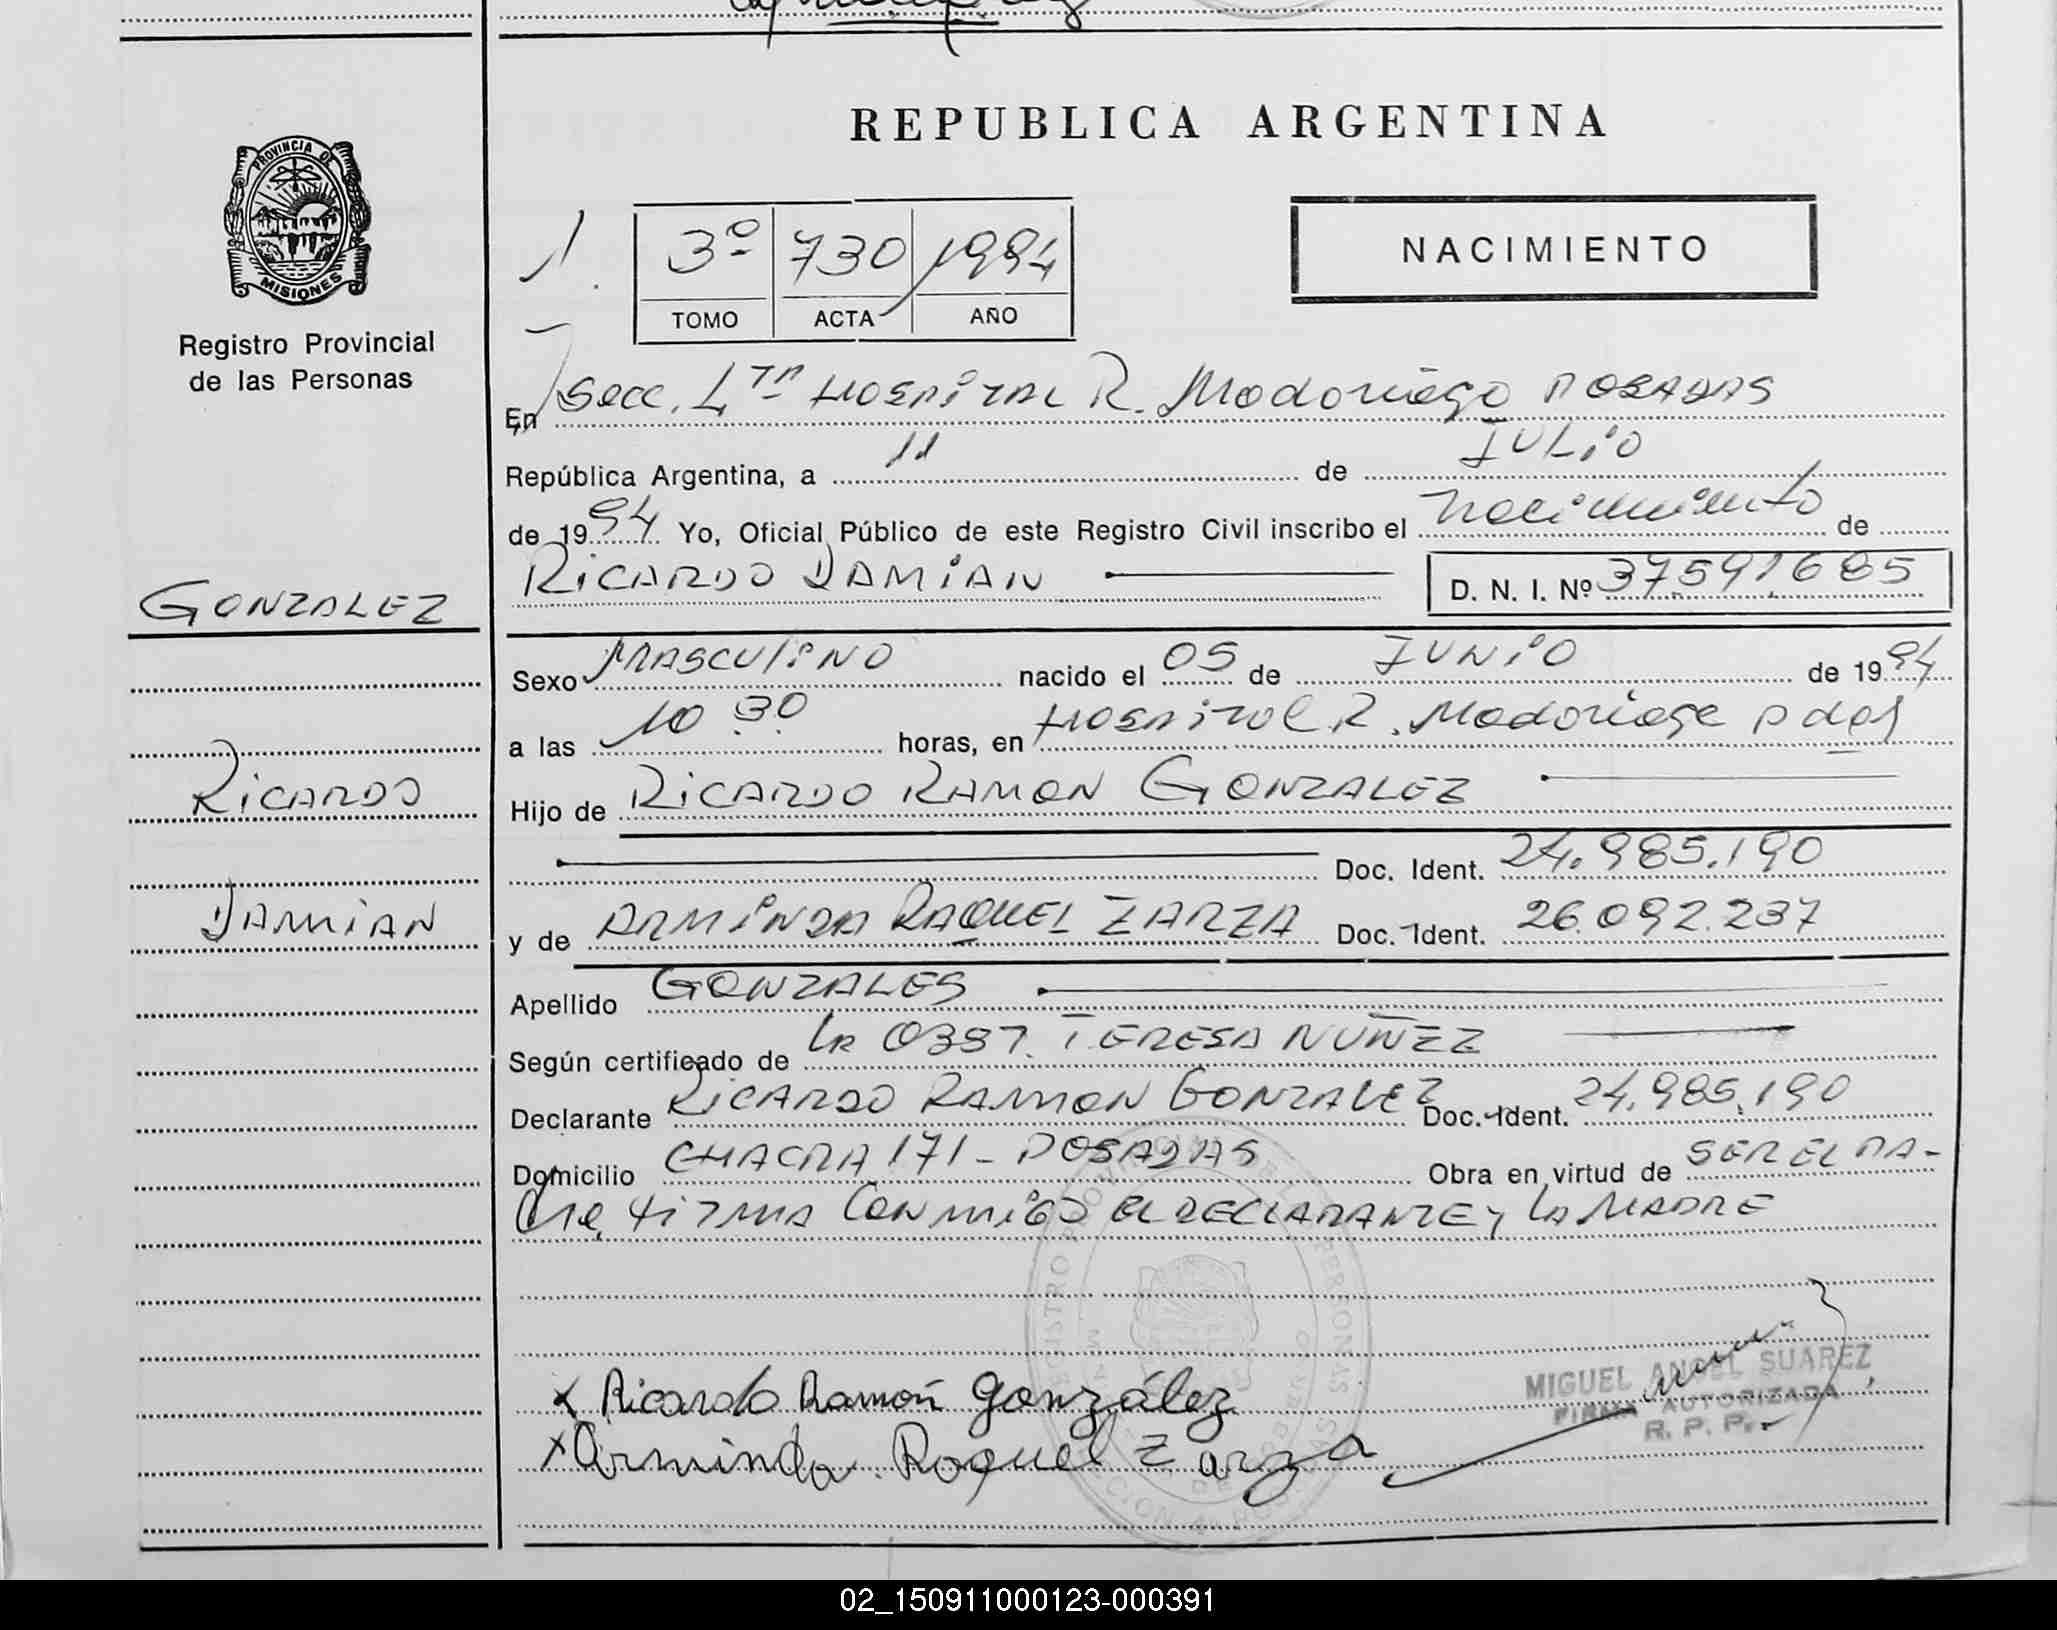 REPUBLICA ARGENTINA
PROVINCIA DE
MISIONES
Registro Provincial
de las Personas
NACIMIENTO
3º 730 1994
TOMO ACTA AÑO
En Secc. 4ta HOSPITAL R. Madariaga POSADAS
República Argentina, a 11 de JULIO
de 1994 Yo, Oficial Público de este Registro Civil inscribo el nacimiento de
GONZALEZ
RICARDO DAMIAN D. N. I. Nº 37.591.685
Sexo MASCULINO nacido el 05 de JUNIO de 1994
a las 10 30 horas, en HOSPITAL R. Madariaga Pdas
RICARDO
Hijo de RICARDO RAMON GONZALEZ
Doc. Ident. 24.985.190
DAMIAN
y de ARMINDA RAQUEL ZARZA Doc. Ident. 26.092.237
Apellido GONZALES
Según certificado de La 0387. TERESA NUÑEZ
Declarante RICARDO RAMON GONZALEZ Doc. Ident. 24.985.190
Domicilio CHACRA 171 - POSADAS Obra en virtud de SER EL PA-
dre, FIRMA CONMIGO EL DECLARANTE y LA MADRE
x Ricardo Ramón González
x Arminda Raquel Zarza
MIGUEL ANGEL SUAREZ
FIRMA AUTORIZADA
R. P. P.
02_150911000123-000391